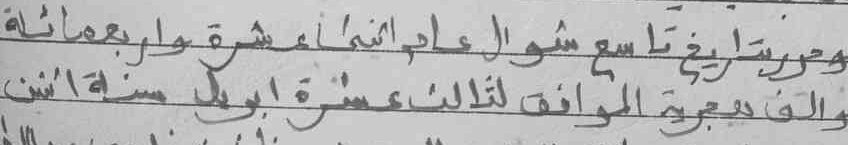 وحرر بتاريخ تاسع شوال عام اثنتا عشرة واربعمائة
والف هجرية الموافق لثالث عشرة ابريل سنة اثنين